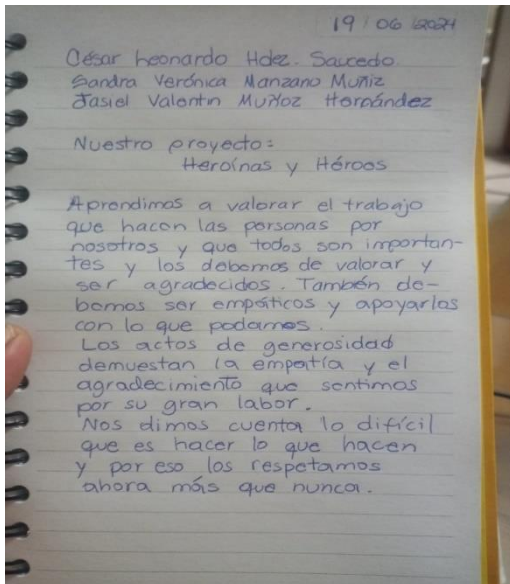 19/06/2024
César Leonardo Hdez. Saucedo
Sandra Verónica Manzano Muñiz
Jasiel Valentin Muñoz Hernández
Nuestro proyecto:
Heroínas y Héroes
Aprendimos a valorar el trabajo
que hacen las personas por
nosotros y que todos son importan-
tes y los debemos de valorar y
ser agradecidos. También de-
bemos ser empáticos y apoyarlos
con lo que podamos.
Los actos de generosidad
demuestran la empatía y el
agradecimiento que sentimos
por su gran labor.
Nos dimos cuenta lo difícil
que es hacer lo que hacen
y por eso los respetamos
ahora más que nunca.